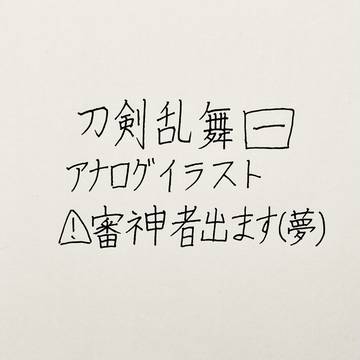 刀剣乱舞 一
アナログイラスト
⚠審神者出ます(夢)